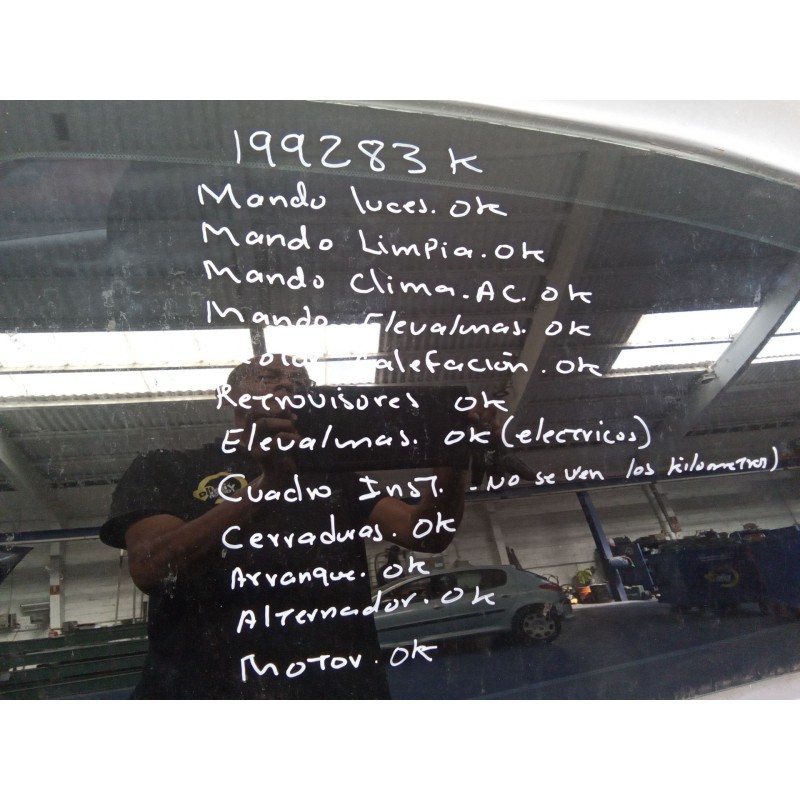 199283 K
Mando luces. OK
Mando Limpia. OK
Mando Clima. AC. OK
Mando Elevalunas. OK
Calefacción. OK
Retrovisores OK
Elevalunas. OK (electricos)
Cuadro Inst. - No se ven los kilometros)
Cerraduras. OK
Arranque. OK
Alternador. OK
Motor. OK